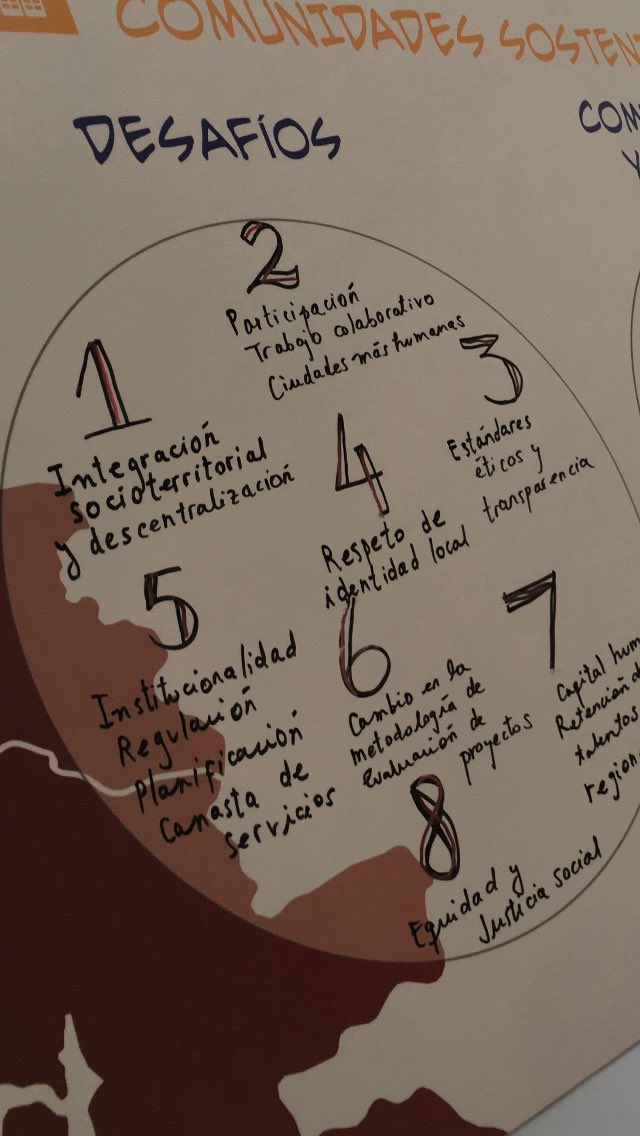 COMUNIDADES
DESAFÍOS
1
Integración
socioterritorial
y descentralización
2
Participación
Trabajo colaborativo
Ciudades más humanas
3
Estándares
éticos y
transparencia
4
Respeto de
identidad local
5
Institucionalidad
Regulación
Planificación
Canasta de
servicios
6
Cambio en la
metodología de
Evaluación de
proyectos
7
Capital
Retención
talentos
8
Equidad y
Justicia social